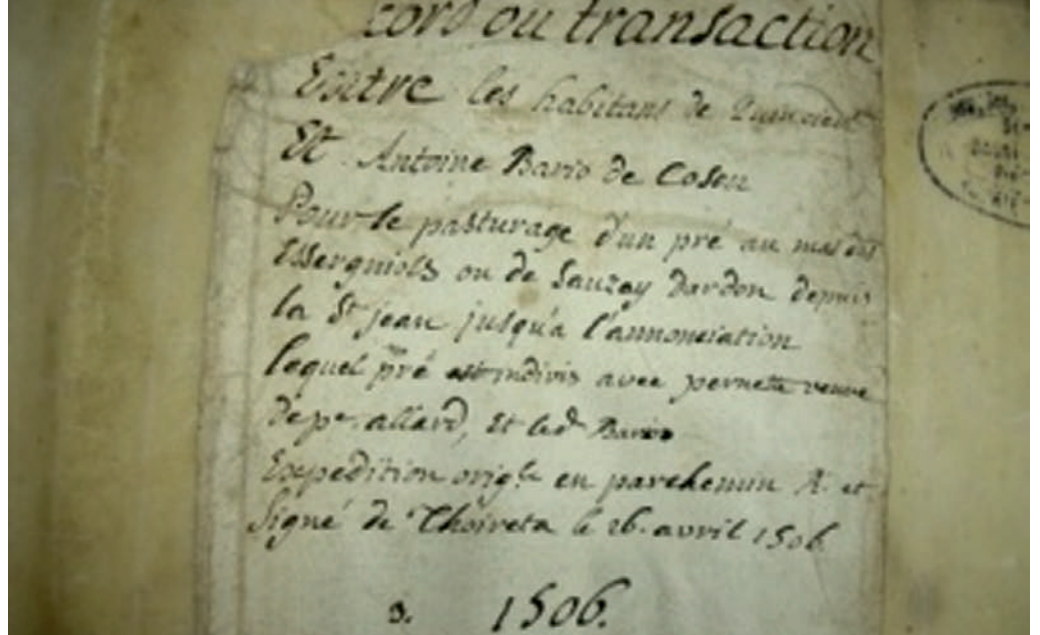 cord ou transaction
Entre les habitans de
Et Antoine Bario de Coson
Pour le pasturage d'un pré au mas des
Essergniols ou de Sauzey Dardon depuis
la St jean jusqu'a l'annonciation
lequel pré est indivis avec pernette veuve
de pe. allard, Et led. Bario
Expedition orig.le en parchemin R. et
Signé de Thoireta le 26. avril 1506
3. 1506.